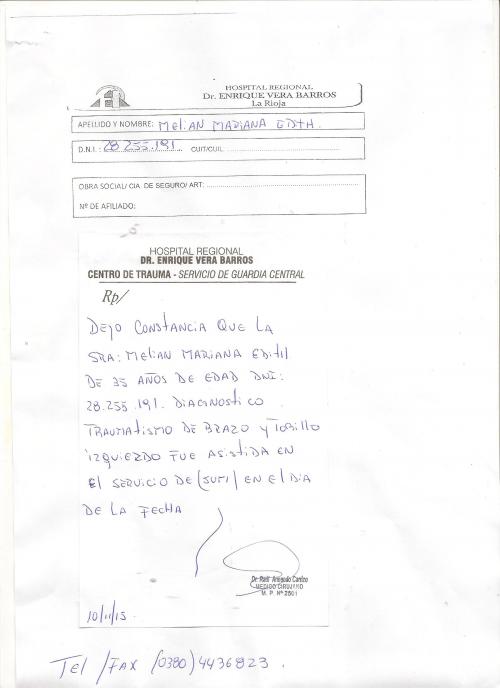 HOSPITAL REGIONAL
Dr. ENRIQUE VERA BARROS
La Rioja
APELLIDO Y NOMBRE: MELIAN MARIANA EDITH.
D.N.I.: 28.255.191 CUIT/CUIL:
OBRA SOCIAL/ CIA DE SEGURO/ ART:
Nº DE AFILIADO:
HOSPITAL REGIONAL
DR. ENRIQUE VERA BARROS
CENTRO DE TRAUMA - SERVICIO DE GUARDIA CENTRAL
Rp/
DEJO CONSTANCIA QUE LA
SRA: MELIAN MARIANA EDITH
DE 35 AÑOS DE EDAD DNI:
28.255.191. DIAGNOSTICO
TRAUMATISMO DE BRAZO Y TOBILLO
IZQUIERDO FUE ASISTIDA EN
EL SERVICIO DE (SUMI) EN EL DIA
DE LA FECHA
Dr. Raúl Armando
MEDICO CIRUJANO
M. P. Nº 2501
10/11/15
Tel /FAX (0380) 4436823.